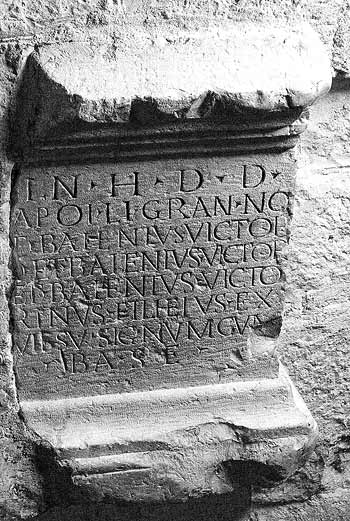 I·N·H·D·D·
APOLLI·GRAN·NO
P·BAIENIVS·VICTOR
ET·BAIENIVS·VICTOR
ET·BAIENIVS·VICTO
RINVS·FILI·EIVS·EX
VSV·SIGNVM·CVM
BASE